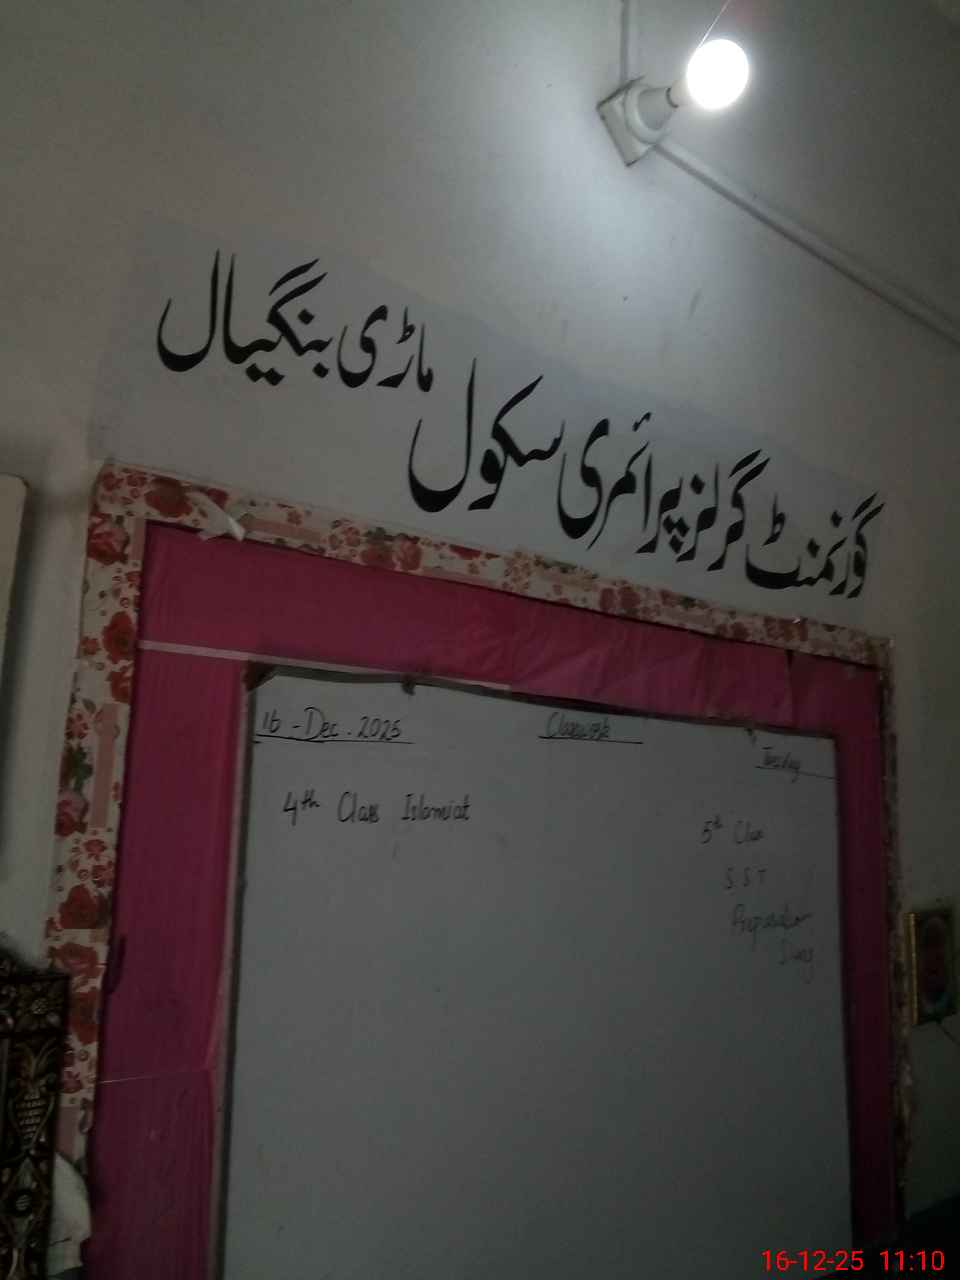 گورنمنٹ گرلز پرائمری سکول ماڑی بنگیال
16-Dec.2025
Classwork
Tuesday
4th Class Islamiat
5th Class
S.S.T
Preparation
Day
16-12-25 11:10